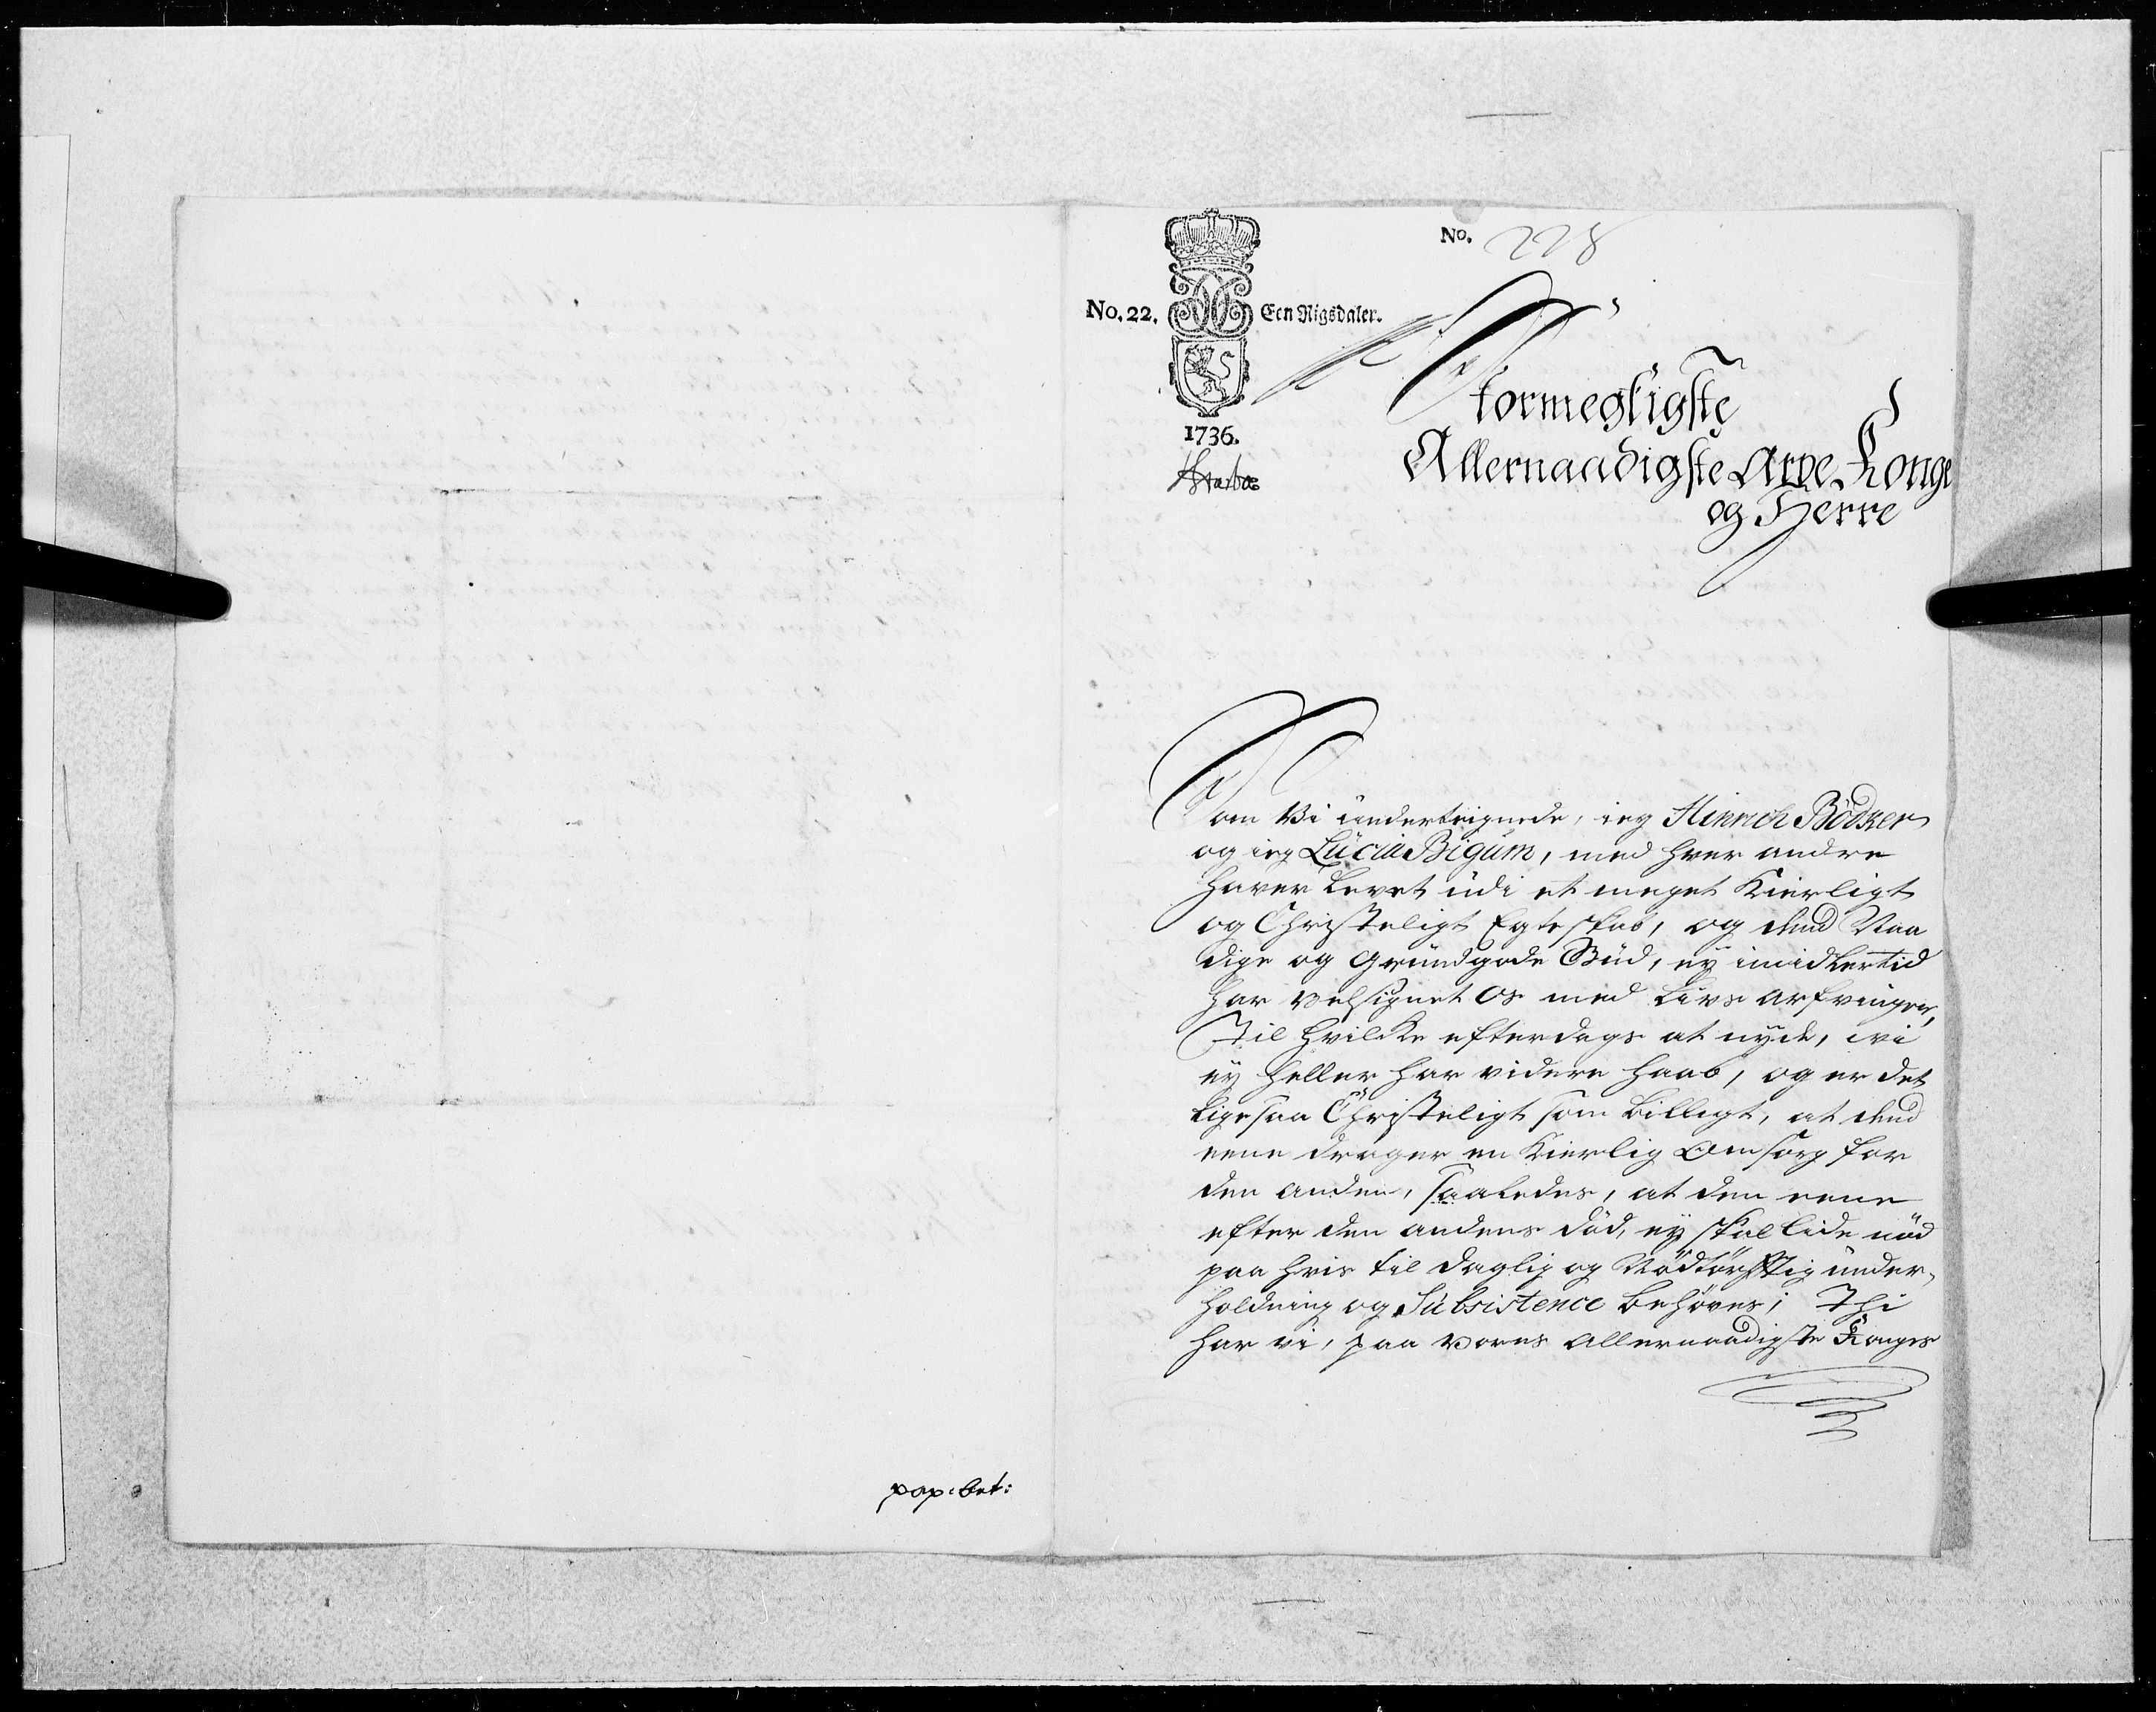 No. 228
No. 22. Een Rigsdaler.
1736.
Stormegtigste
Allernaadigste Arve Konge
og Herre
Som Vi underteignede, ieg Hinrich Bödker
og ieg Lücia Bigüm, med hver andre
haver levet üdi et meget Kierligt
og Christeligt Egteskab, og dend Naa
dige og Gründgode Güd, ey imidlertid
har velsignet Os med Livs Arfvinger,
Til hvilke efterdags at nyde, wi
ey heller har videre Haab, og er det
ligesaa Christeligt som billigt, at dend
eene drager en Kierlig Omsorg for
den anden, saaledes, at den eene
efter den andens död, ey skal lide nöd
paa hvis til daglig og Nödtörfftig ünder-
holdning og Sübsistence behöves; Thi
har vi, paa vores Allernaadigste Konges
pap: bet: